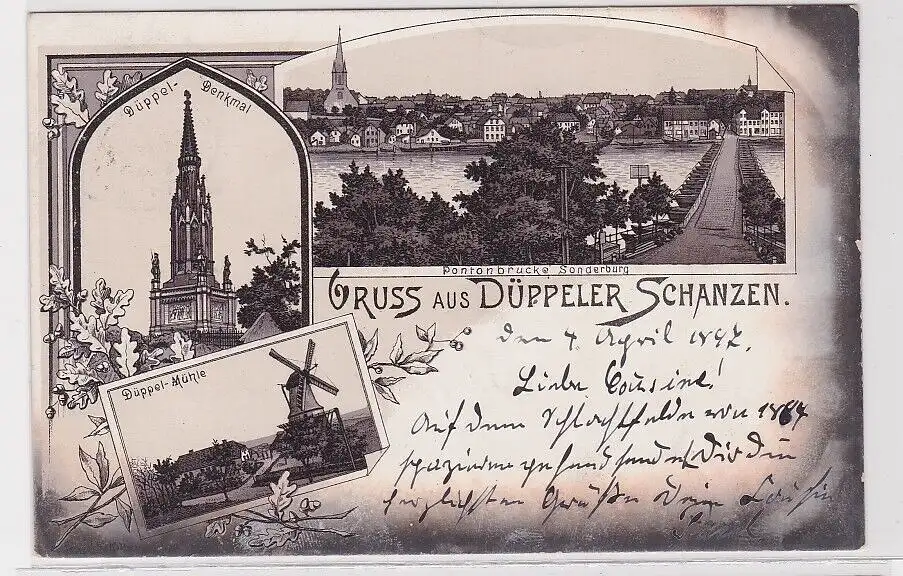 Düppel-Denkmal
Pontonbrücke Sonderburg
GRUSS AUS DÜPPELER SCHANZEN.
Düppel-Mühle
den 4. April 1897.
Liebe Cousine!
Auf dem Schlachtfelde von 1864
spazieren gehend sendet Dir die
herzlichsten Grüße Dein Cousin